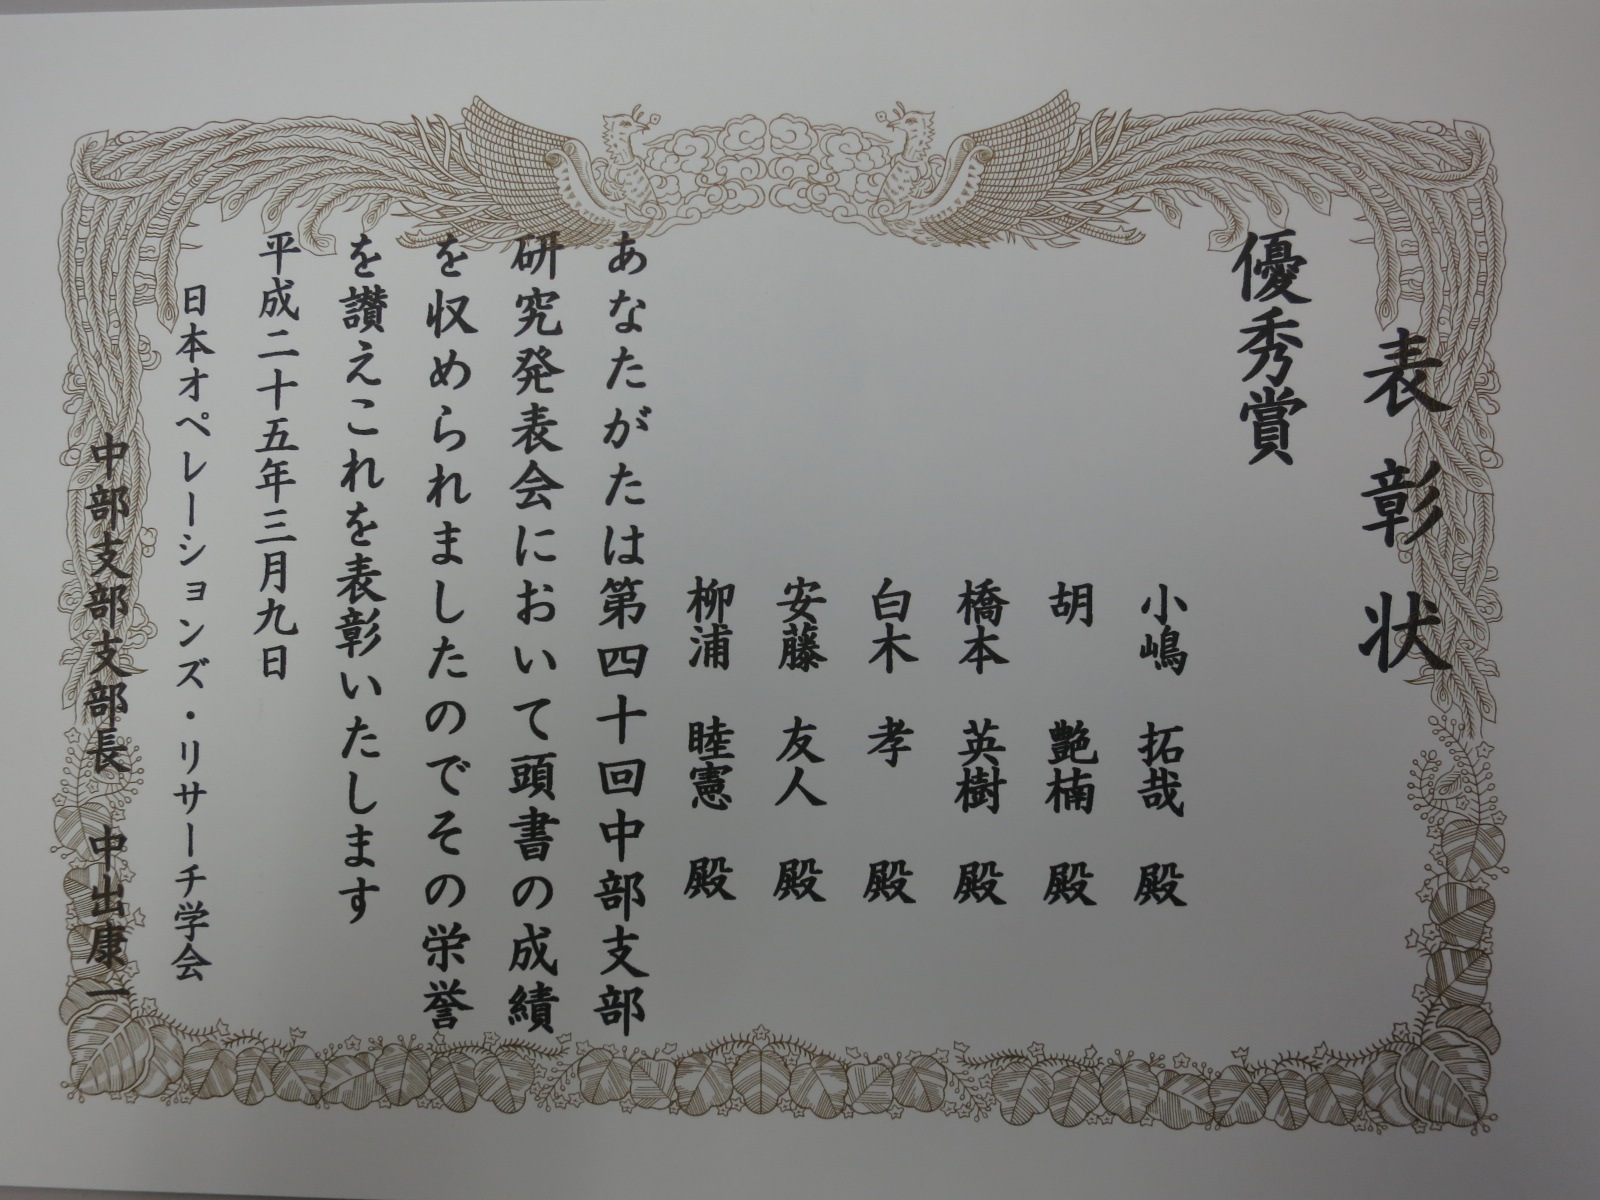 表彰状
優秀賞
小嶋 拓哉 殿
胡 艶楠 殿
橋本 英樹 殿
白木 孝 殿
安藤 友人 殿
柳浦 睦憲 殿
あなたがたは第四十回中部支部
研究発表会において頭書の成績
を収められましたのでその栄誉
を讃えこれを表彰いたします
平成二十五年三月九日
日本オペレーションズ・リサーチ学会
中部支部支部長 中出康一